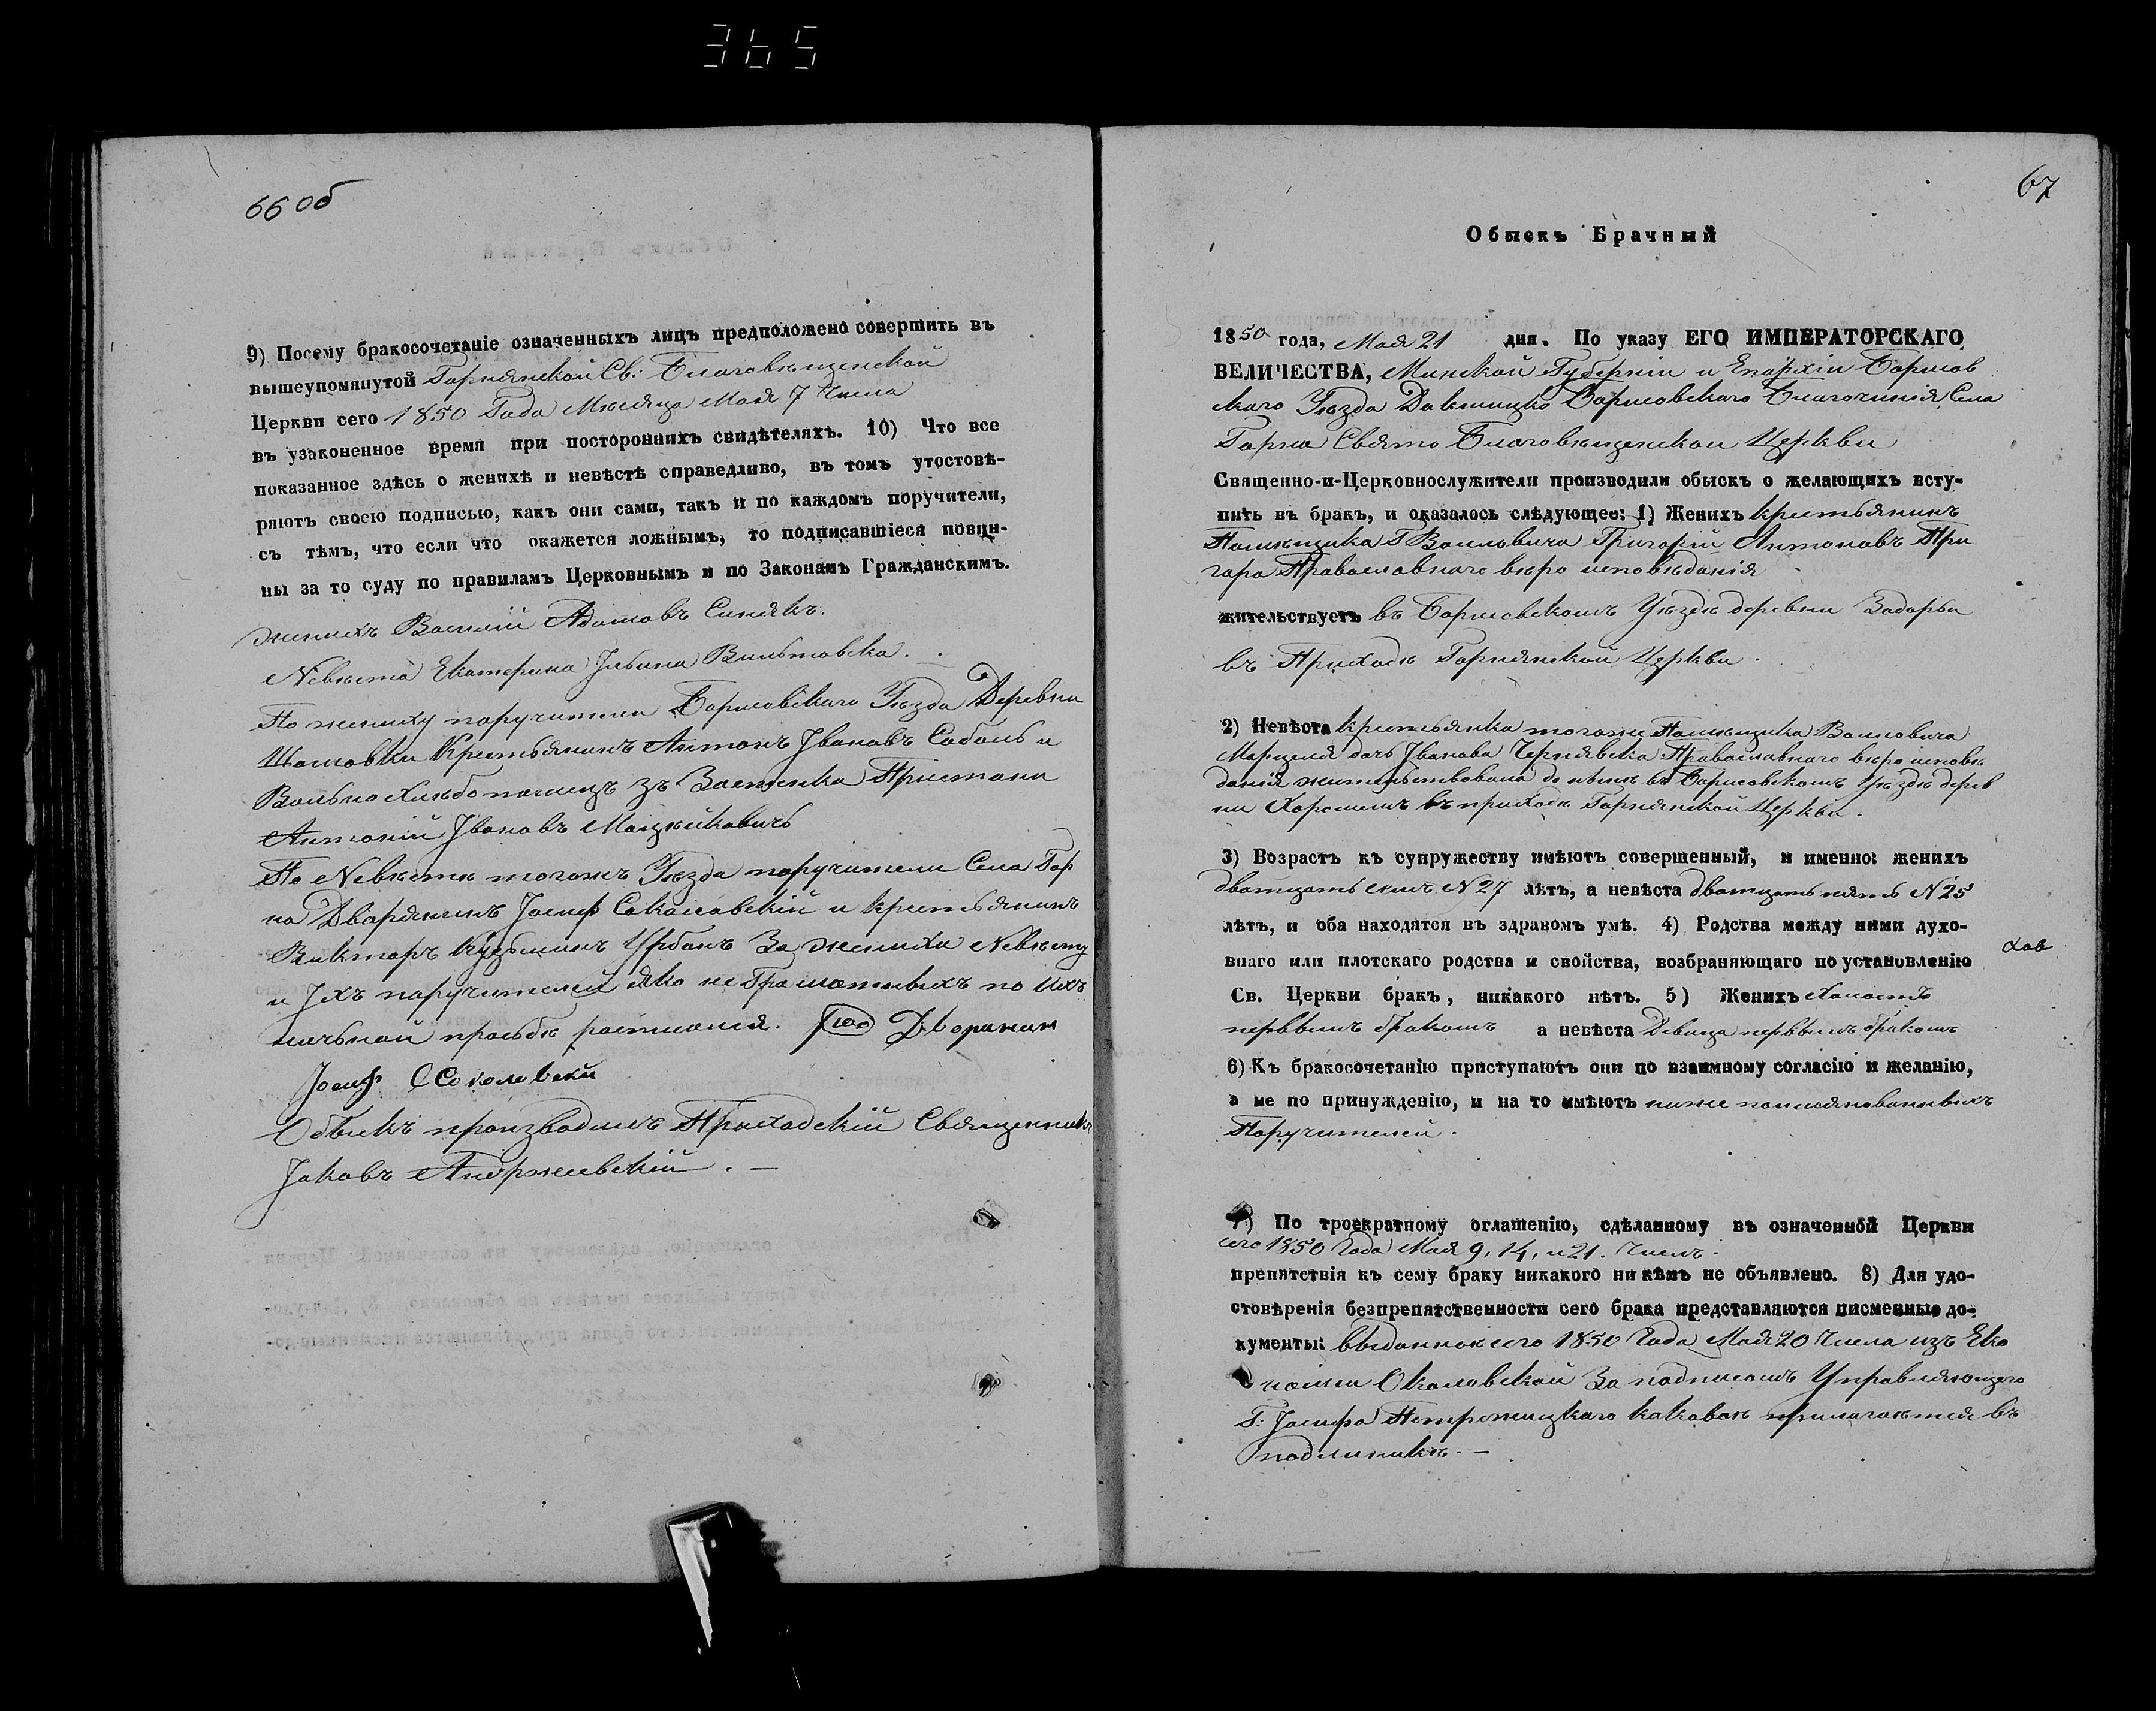 365
66 об
9) Посему бракосочетаніе означенныхъ лицъ предположено совершить въ
вышеупомянутой Горнянской Св: Благовѣщенской
Церкви сего 1850 Года Мѣсяца Мая 7 Числа
въ узаконенное время при постороннихъ свидѣтеляхъ. 10) Что все
показанное здѣсь о женихѣ и невѣстѣ справедливо, въ томъ утостовѣ-
ряютъ своею подписью, какъ они сами, такъ и по каждомъ поручители,
съ тѣмъ, что если что окажется ложнымъ, то подписавшіеся повин-
ны за то суду по правиламъ Церковнымъ и по Законамъ Гражданскимъ.
Женихъ Василій Адамовъ Синякъ.
Nевѣста Екатерина Ильина Вильтовска.
По жениху поручители Борисовскаго Уѣзда Деревни
Крестьянинъ Антонъ Iвановъ Соболь и
Вольно хлѣбопашецъ зъ Застенка Пристани
Антоній Iвановъ Мацкѣйковичъ
По Nевѣстѣ тогожъ Уѣзда поручители Села Гор
на Дворянинъ Iосиф Соколовскій и крестьянинъ
Викторъ Кузьминъ Урбанъ За жениха Nевѣсту
и Iхъ поручителей яко не Грамотныхъ по ихъ
личьной прозьбѣ росписался. Дворянин
Iосиф Соколовски
Обыскъ производилъ Приходскій Священникъ
Iаковъ Андржеевскій. —
67
Обыскъ Брачный
1850 года, Мая 21 дня. По указу ЕГО ИМПЕРАТОРСКАГО
ВЕЛИЧЕСТВА, Минской Губерніи и Епархіи Борисов
скаго Уѣзда Докшицко Борисовскаго Благочинія Села
Горна Свято Благовѣщенской Церкви
Священно-и-Церковнослужители производили обыскъ о желающихъ всту-
пить въ бракъ, и оказалось слѣдующее: 1) Женихъ крестьянинъ
Помѣщика Г Воиловича Григорій Антоновъ При
гара Православнаго вѣро исповѣданія
жительствуетъ въ Борисовскомъ Уѣздѣ деревни Задорьи
въ Приходѣ Горнянской Церкви.
2) Невѣста крестьянка тогоже Помѣщика Воиловича
Марцеля дочь Iванова Чернявска Православнаго вѣро исповѣ
данія жительствовала до нынѣ въ Борисовскомъ Уѣздѣ дерев
ни въ приходѣ Горнянской Церкви.
3) Возрастъ къ супружеству имѣютъ совершенный, и именно: женихъ
дватцать семь N 27 лѣтъ, а невѣста дватцать пять N 25
лѣтъ, и оба находятся въ здравомъ умѣ. 4) Родства между ними духо-
внаго или плотскаго родства и свойства, возбраняющаго по установленію
Св. Церкви бракъ, никакого нѣтъ. 5) Женихъ холостъ
первымъ бракомъ а невѣста Девица первымъ бракомъ
6) Къ бракосочетанію приступаютъ они по взаимному согласію и желанію,
а не по принужденію, и на то имѣютъ ниже поименованныхъ
Поручителей.
7) По троекратному оглашенію, сдѣланному въ означенной Церкви
сего 1850 Года Мая 9, 14, и 21. Числъ.
препятствія къ сему браку никакого никѣмъ не объявлено. 8) Для удо-
стовѣренія безпрепятственности сего брака представляются писменные до-
кументы: выданное сего 1850 Года Мая 20 Числа изъ Эко
номіи Околовской За подписомъ Управляющаго
Г: Iосифа каковое прилогается въ
подлиникѣ. —